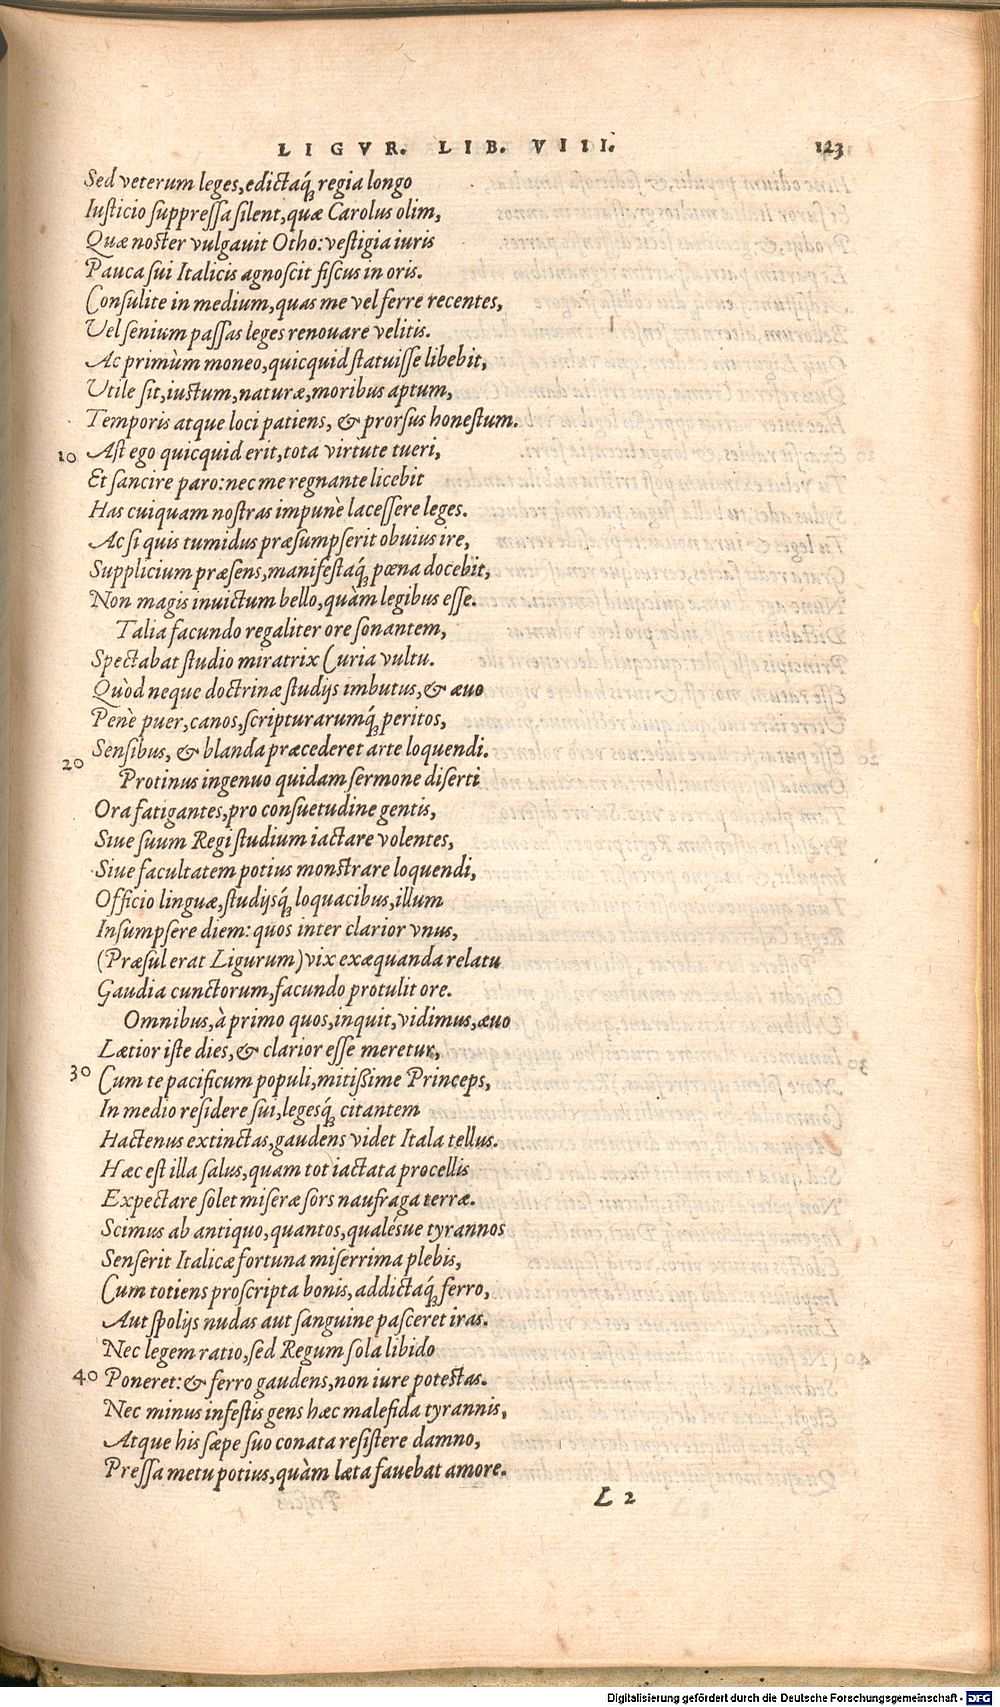 LIGVR. LIB. VIII. 123
Sed veterum leges, edictaq́; regia longo
Iusticio suppressa silent, quæ Carolus olim,
Quæ noster vulgauit Otho: vestigia iuris
Pauca sui Italicis agnoscit fiscus in oris.
Consulite in medium, quas me vel ferre recentes,
Vel senium passas leges renouare velitis.
Ac primùm moneo, quicquid statuisse libebit,
Vtile sit, iustum, naturæ, moribus aptum,
Temporis atque loci patiens, & prorsus honestum.
10 Ast ego quicquid erit, tota virtute tueri,
Et sancire paro: nec me regnante licebit
Has cuiquam nostras impunè lacessere leges.
Ac si quis tumidus præsumpserit obuius ire,
Supplicium præsens, manifestaq́; pœna docebit,
Non magis inuictum bello, quàm legibus esse.
Talia facundo regaliter ore sonantem,
Spectabat studio miratrix Curia vultu.
Quòd neque doctrinæ studijs imbutus, & æuo
Penè puer, canos, scripturarumq́; peritos,
20 Sensibus, & blanda præcederet arte loquendi.
Protinus ingenuo quidam sermone diserti
Ora fatigantes, pro consuetudine gentis,
Siue suum Regi studium iactare volentes,
Siue facultatem potius monstrare loquendi,
Officio linguæ, studijsq́; loquacibus, illum
Insumpsere diem: quos inter clarior vnus,
(Præsul erat Ligurum) vix exæquanda relatu
Gaudia cunctorum, facundo protulit ore.
Omnibus, à primo quos, inquit, vidimus, æuo
Lætior iste dies, & clarior esse meretur,
30 Cum te pacificum populi, mitißime Princeps,
In medio residere sui, legesq́; citantem
Hactenus extinctas, gaudens videt Itala tellus.
Hæc est illa salus, quam tot iactata procellis
Expectare solet miseræ sors naufraga terræ.
Scimus ab antiquo, quantos, qualésue tyrannos
Senserit Italicæ fortuna miserrima plebis,
Cum totiens proscripta bonis, addictaq́; ferro,
Aut spolijs nudas aut sanguine pasceret iras.
Nec legem ratio, sed Regum sola libido
40 Poneret: & ferro gaudens, non iure potestas.
Nec minus infestis gens hæc malefida tyrannis,
Atque his sæpe suo conata resistere damno,
Pressa metu potius, quàm læta fauebat amore.
L 2
Digitalisierung gefördert durch die Deutsche Forschungsgemeinschaft - DFG